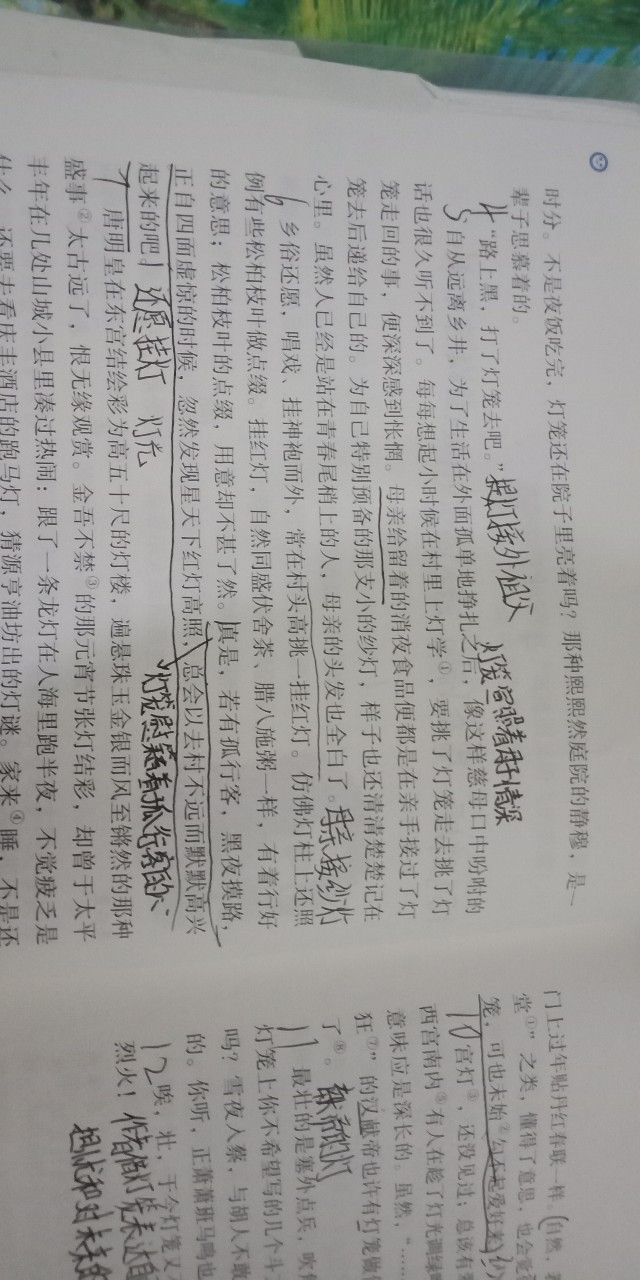 时分。不是夜饭吃完，灯笼还在院子里亮着吗？那种熙熙然庭院的静穆，是一
辈子思慕着的。
4 “路上黑，打了灯笼去吧。” 提灯接外祖父
5 自从远离乡井，为了生活在外面孤单地挣扎之后，像这样慈母口中吩咐的
灯笼寄照着母子情深
话也很久听不到了。每每想起小时候在村里上灯学①，要挑了灯笼走去挑了灯
笼走回的事，便深深感到怅惘。母亲给留着的消夜食品便都是在亲手接过了灯
笼去后递给自己的。为自己特别预备的那支小的纱灯，样子也还清清楚楚记在
心里。虽然人已经是站在青春尾梢上的人，母亲的头发也全白了。母亲接纱灯
6 乡俗还愿，唱戏、挂神袍而外，常在村头高挑一挂红灯。仿佛灯柱上还照
例有些松柏枝叶做点缀。挂红灯，自然同盛伏舍茶、腊八施粥一样，有着行好
的意思；松柏枝叶的点缀，用意却不甚了然。真是，若有孤行客，黑夜摸路，
正自四面虚惊的时候，忽然发现星天下红灯高照，总会以去村不远而默默高兴
起来的吧！ 还愿挂灯 灯光
灯笼慰藉着孤行客的心
7 唐明皇在东宫结绘彩为高五十尺的灯楼，遍悬珠玉金银而风至锵然的那种
盛事②太古远了，恨无缘观赏。金吾不禁③的那元宵节张灯结彩，却曾于太平
丰年在几处山城小县里凑过热闹：跟了一条龙灯在人海里跑半夜，不觉疲乏是
什么，还要去看庆丰酒店的跑马灯，猜源亨油坊出的灯谜。家来④睡，不是还
门上过年贴丹红春联一样。（自然，
堂①”之类，懂得了意思，也会觉
笼，可也未始②勾不起爱好来）
10 宫灯③，还没见过；总该有
西宫南内⑤有人在趁了灯光调绿
意味应是深长的。虽然，“……
狂⑦”的汉献帝也许有灯笼做
了⑧。
11 最壮的是塞外点兵，吹
灯笼上你不希望写的几个斗
吗？雪夜入蔡，与胡人不敢
的。你听，正萧萧班马鸣也
12 唉，壮，于今灯笼又
烈火！ 作者借灯笼表达自
担忧和对未来的